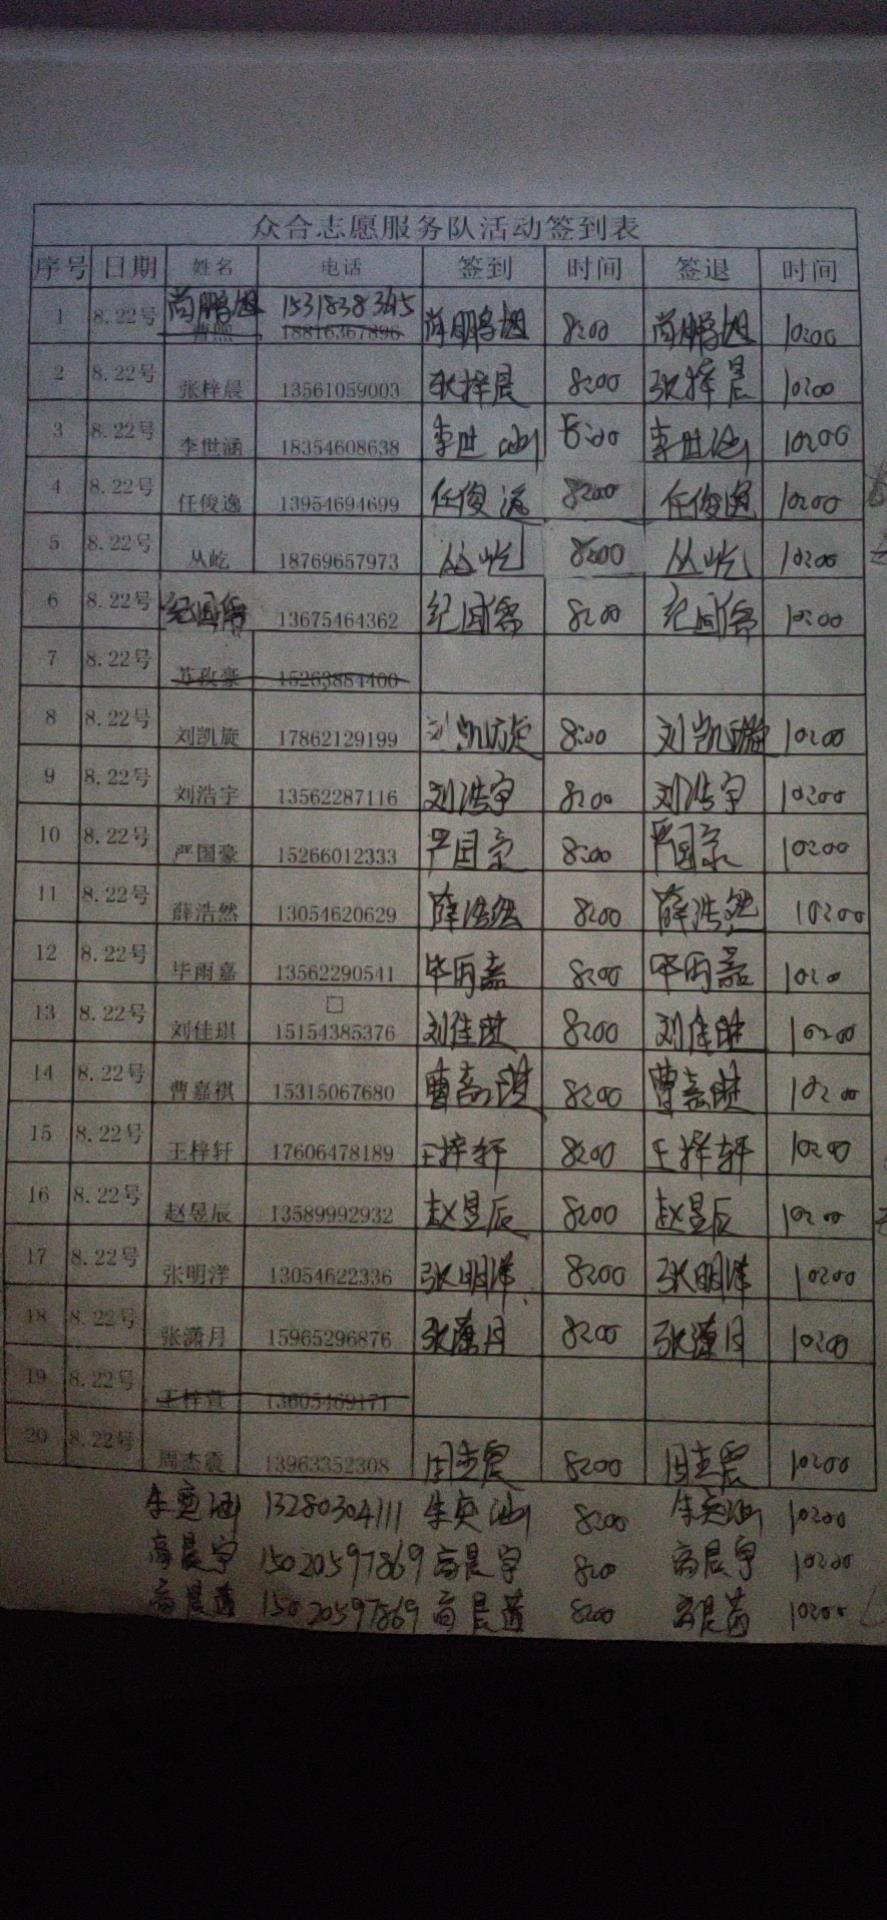 众合志愿服务队活动签到表
序号 日期 姓名 电话 签到 时间 签退 时间
尚鹏旭
1 8.22号 曹熙 18816367896 尚鹏旭 8:00 尚鹏旭 10:00
2 8.22号 张梓晨 13561059003 张梓晨 8:00 张梓晨 10:00
3 8.22号 李世涵 18354608638 李世涵 8:00 李世涵 10:00
4 8.22号 任俊逸 13954694699 任俊逸 8:00 任俊逸 10:00
5 8.22号 丛屹 18769657973 丛屹 8:00 丛屹 10:00
6 8.22号 13675464362 8:00 10:00
7 8.22号 苏孜豪 15263884400
8 8.22号 刘凯旋 17862129199 刘凯旋 8:00 刘凯璇 10:00
9 8.22号 刘浩宇 13562287116 刘浩宇 8:00 刘浩宇 10:00
10 8.22号 严国豪 15266012333 严国豪 8:00 严国豪 10:00
11 8.22号 薛浩然 13054620629 薛浩然 8:00 薛浩然 10:00
12 8.22号 毕雨嘉 13562290541 毕雨嘉 8:00 毕雨嘉 10:00
13 8.22号 刘佳琪 15154385376 刘佳琪 8:00 刘佳琪 10:00
14 8.22号 曹嘉祺 15315067680 曹嘉祺 8:00 曹嘉祺 10:00
15 8.22号 王梓轩 17606478189 王梓轩 8:00 王梓轩 10:00
16 8.22号 赵昱辰 13589992932 赵昱辰 8:00 赵昱辰 10:00
17 8.22号 张明洋 13054622336 张明洋 8:00 张明洋 10:00
18 8.22号 张潇月 15965296876 张潇月 8:00 张潇月 10:00
19 8.22号 王梓萱 13605469171
20 8.22号 周杰震 13963352308 周杰震 8:00 周杰震 10:00
朱奕涵 13280304111 朱奕涵 8:00 朱奕涵 10:00
高晨宇 15020597869 高晨宇 8:00 高晨宇 10:00
高晨茜 15020597869 高晨茜 8:00 高晨茜 10:00